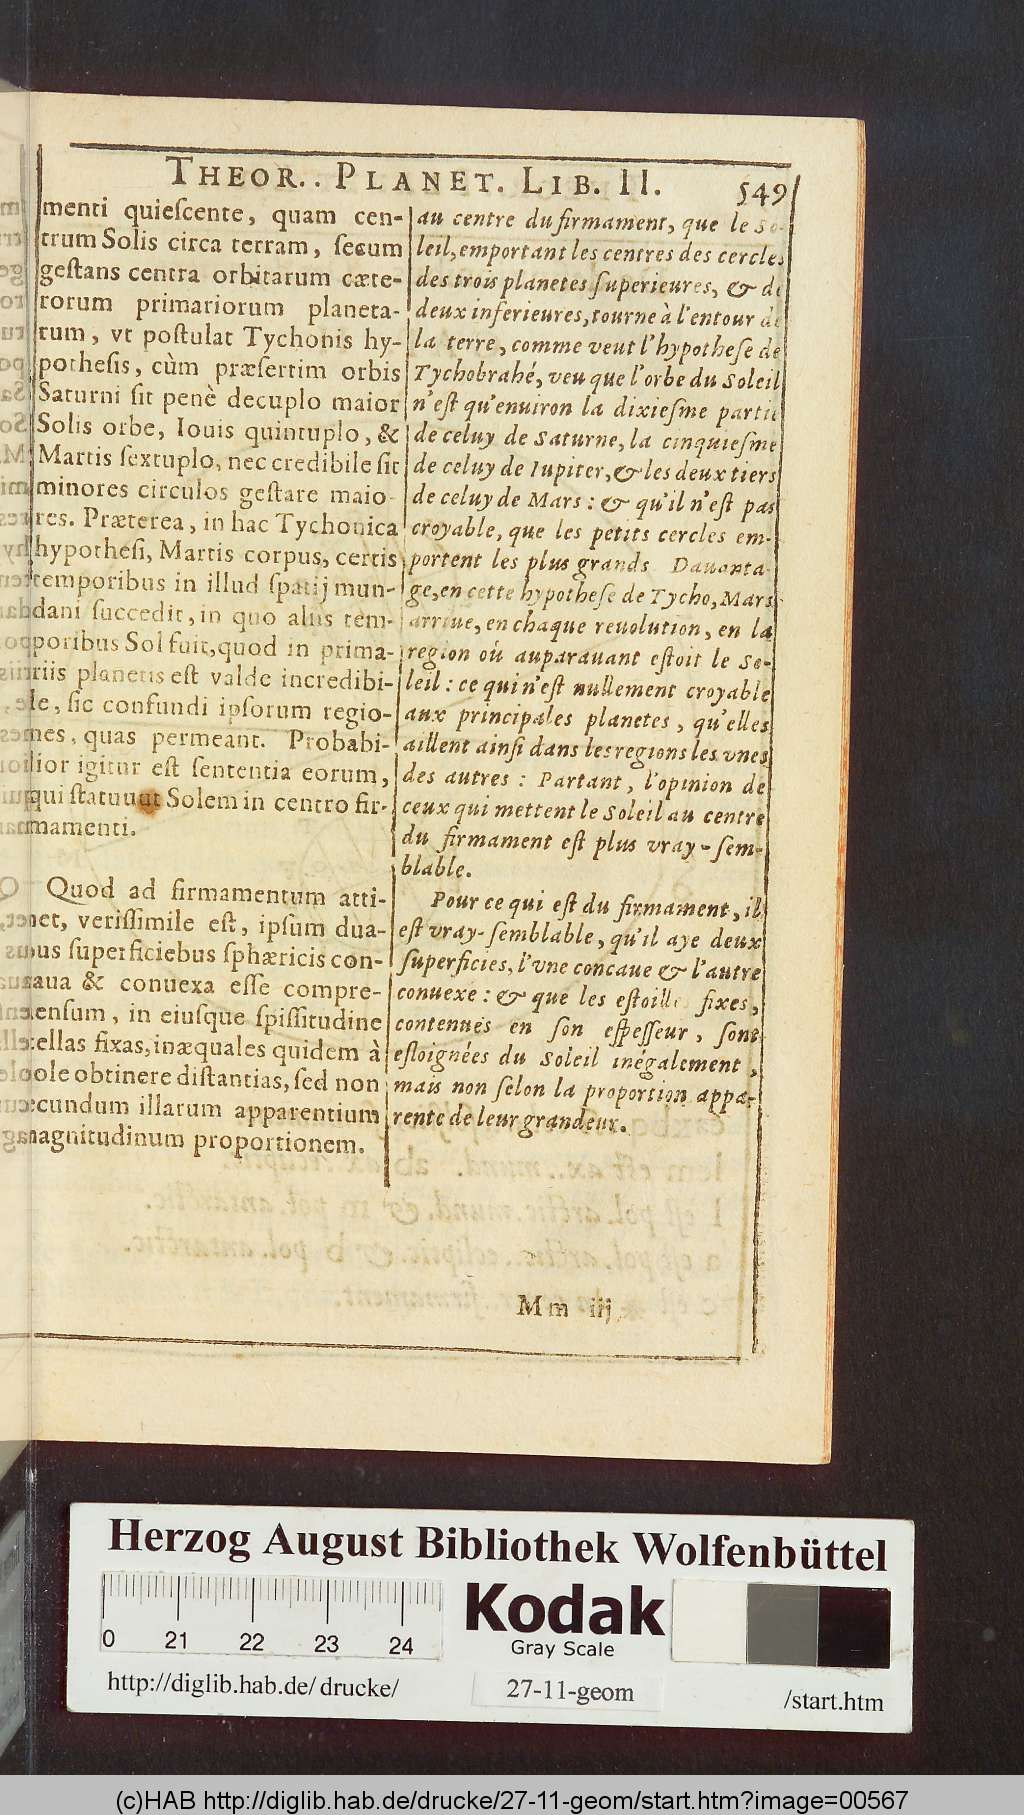 THEOR.. PLANET. LIB. II. 549
menti quieſcente, quam cen-
trum Solis circa terram, ſecum
geſtans centra orbitarum cæte-
rorum primariorum planeta-
rum, vt poſtulat Tychonis hy-
potheſis, cùm præſertim orbis
Saturni ſit penè decuplo maior
Solis orbe, Iouis quintuplo, &
Martis ſextuplo, nec credibile ſit
minores circulos geſtare maio-
res. Præterea, in hac Tychonica
hypotheſi, Martis corpus, certis
temporibus in illud ſpatij mun-
dani ſuccedit, in quo aliis tem-
poribus Sol fuit, quod in prima-
riis planetis eſt valde incredibi-
le, ſic confundi ipſorum regio-
nes, quas permeant. Probabi-
lior igitur eſt ſententia eorum,
qui ſtatuunt Solem in centro fir-
mamenti.
Quod ad firmamentum atti-
net, veriſſimile eſt, ipſum dua-
bus ſuperficiebus ſphæricis con-
caua & conuexa eſſe compre-
henſum, in eiuſque ſpiſſitudine
ſtellas fixas, inæquales quidem à
Sole obtinere diſtantias, ſed non
ſecundum illarum apparentium
magnitudinum proportionem.
au centre du firmament, que le So-
leil, emportant les centres des cercles
des trois planetes ſuperieures, & de
deux inferieures, tourne à l'entour de
la terre, comme veut l'hypotheſe de
Tychobrahé, veu que l'orbe du Soleil
n'eſt qu'enuiron la dixieſme partie
de celuy de Saturne, la cinquieſme
de celuy de Iupiter, & les deux tiers
de celuy de Mars: & qu'il n'eſt pas
croyable, que les petits cercles em-
portent les plus grands. Dauanta-
ge, en cette hypotheſe de Tycho, Mars
arriue, en chaque reuolution, en la
region où auparauant eſtoit le So-
leil: ce qui n'eſt nullement croyable
aux principales planetes, qu'elles
aillent ainſi dans les regions les vnes
des autres: Partant, l'opinion de
ceux qui mettent le Soleil au centre
du firmament eſt plus vray-ſem-
blable.
Pour ce qui eſt du firmament, il
eſt vray-ſemblable, qu'il aye deux
ſuperficies, l'vne concaue & l'autre
conuexe: & que les eſtoilles fixes,
contenuës en ſon eſpeſſeur, ſont
eſloignées du Soleil inégalement,
mais non ſelon la proportion appa-
rente de leur grandeur.
Mm iij
Herzog August Bibliothek Wolfenbüttel
0 21 22 23 24
Kodak
Gray Scale
http://diglib.hab.de/drucke/ 27-11-geom /start.htm
(c)HAB http://diglib.hab.de/drucke/27-11-geom/start.htm?image=00567